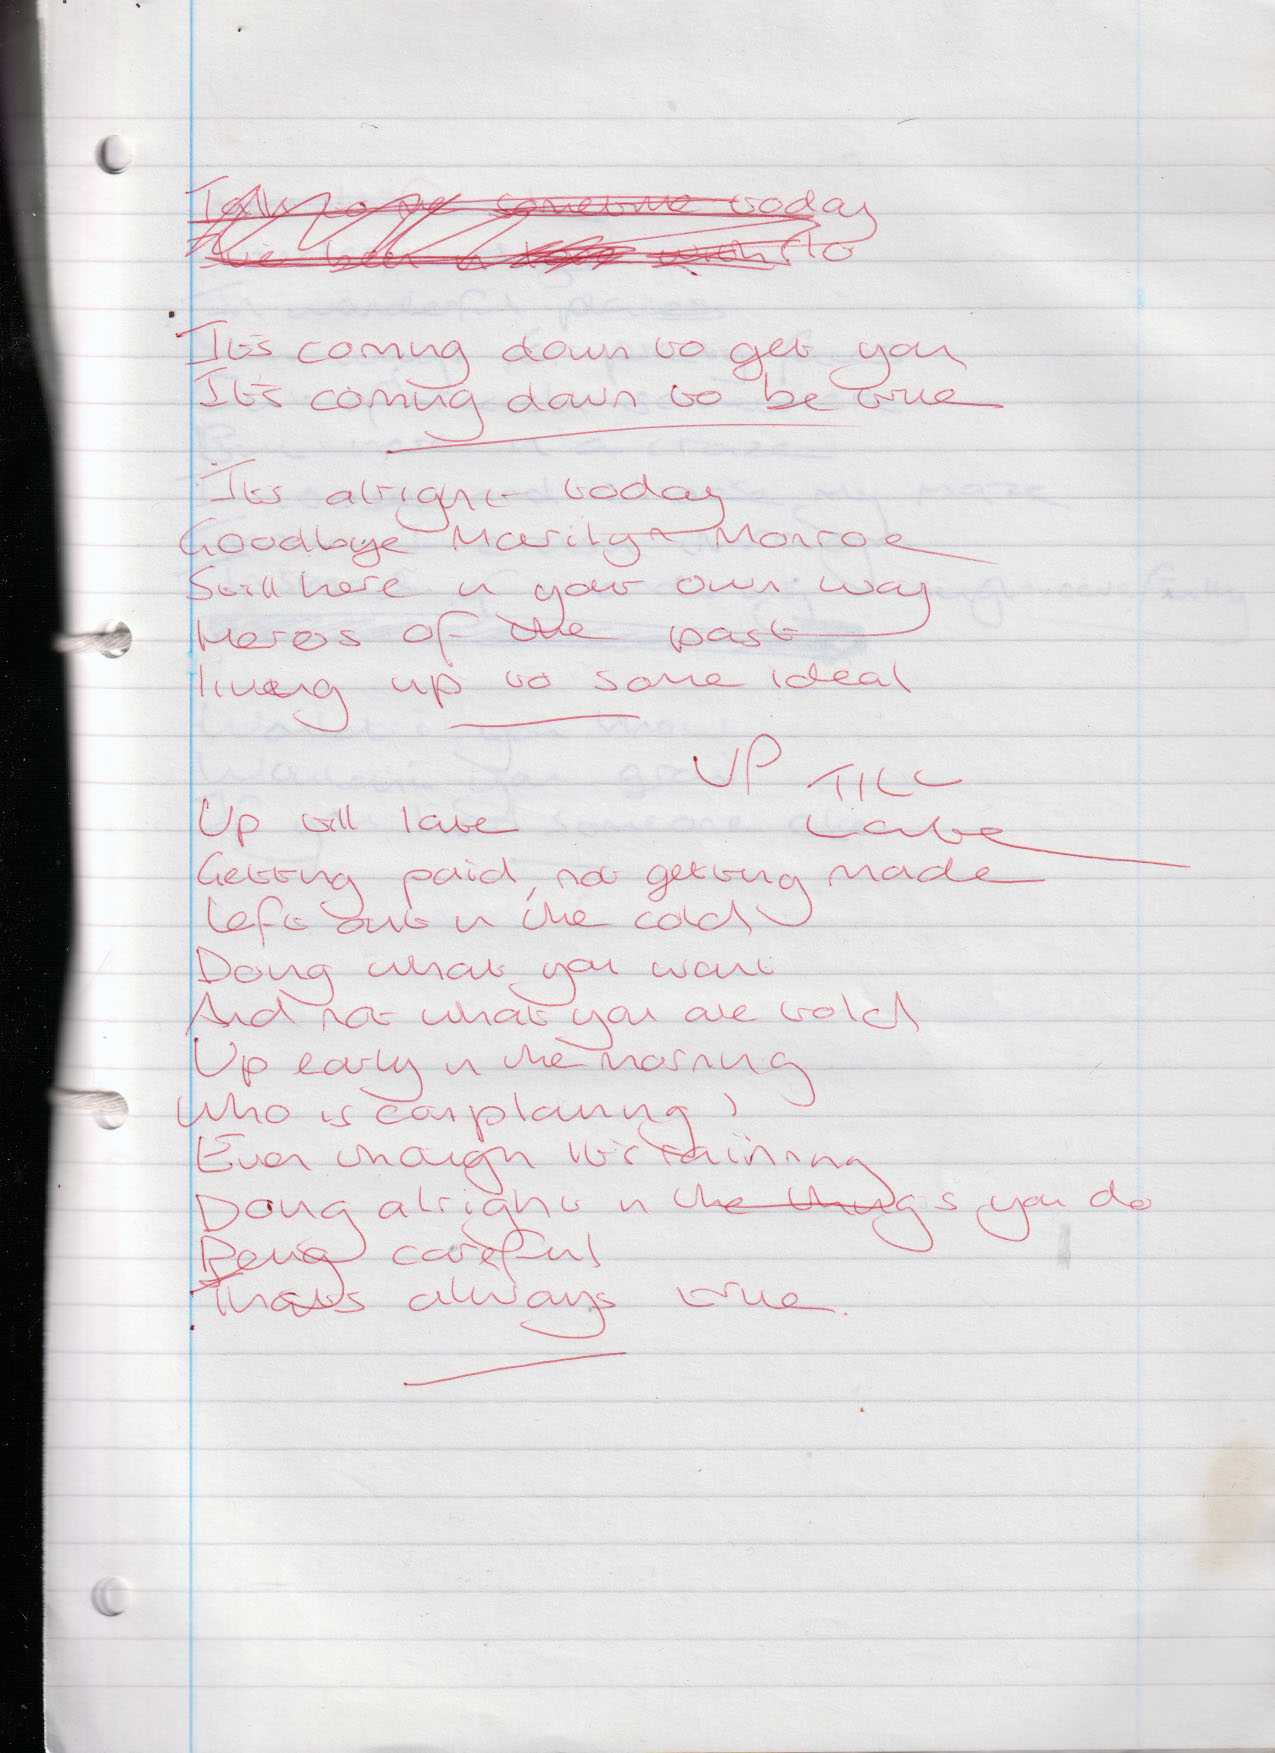 Talk to me sometime today
I've been a with flo
It's coming down to get you
It's coming down to be true
It's alright today
Goodbye Marilyn Monroe
Still here in your own way
Heros of the past
living up to some ideal
UP TILL
Late
Up till late
Getting paid, not getting made
Left out in the cold
Doing what you want
And not what you are told
Up early in the morning
Who is complaining?
Even though it's raining
Doing alright in the things you do
Being careful
Thats always true.